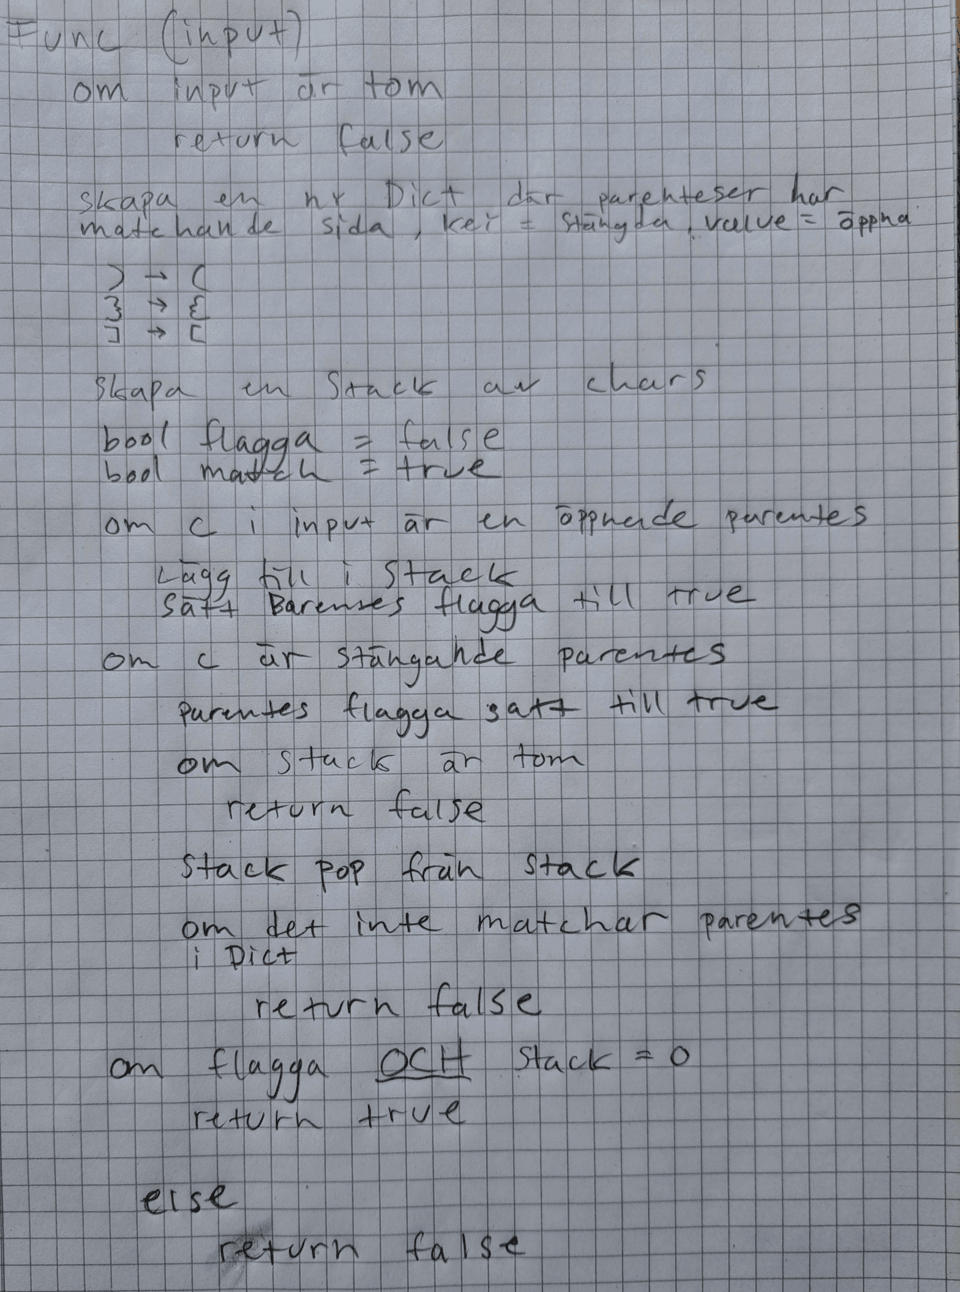 Func (input)
om input är tom
return false
skapa en ny Dict där parenteser har
matchande sida, kei = stängda, value = öppna
) → (
} → {
] → [
skapa en Stack av chars
bool flagga = false
bool match = true
om c i input är en öppnade parentes
Lägg till i Stack
sätt flagga till true
om c är stängande parentes
parentes flagga satt till true
om stack är tom
return false
Stack pop från stack
om det inte matchar parentes
i Dict
return false
om flagga OCH Stack = 0
return true
else
return false